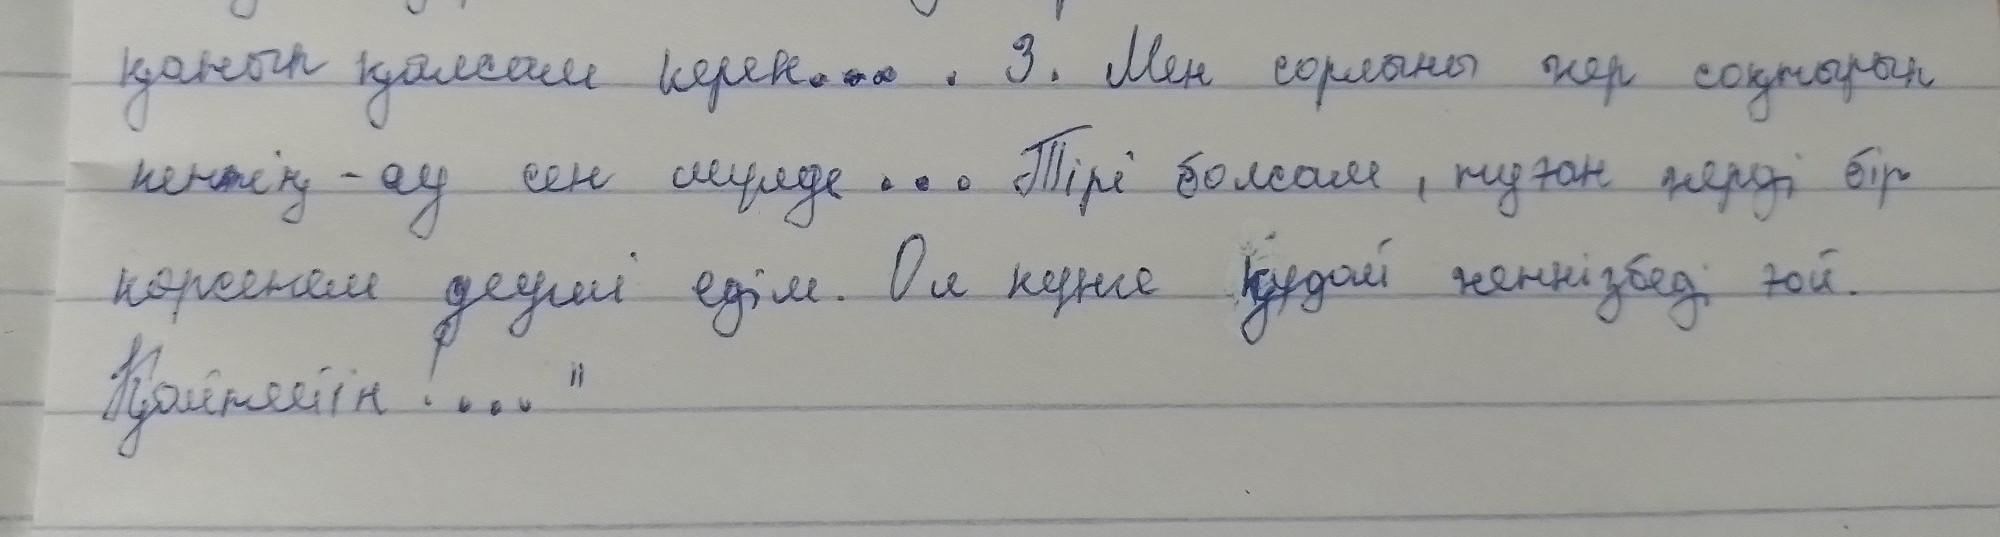 қанып қалсам керек.... . 3. Мен сорлыны жер соқтырып
кеттің-ау сен мүлде ... Тірі болсам, туған жерді бір
көрсемем деуші едім. Ол күнге құдай жеткізбеді ғой.
Қайтейін!...."